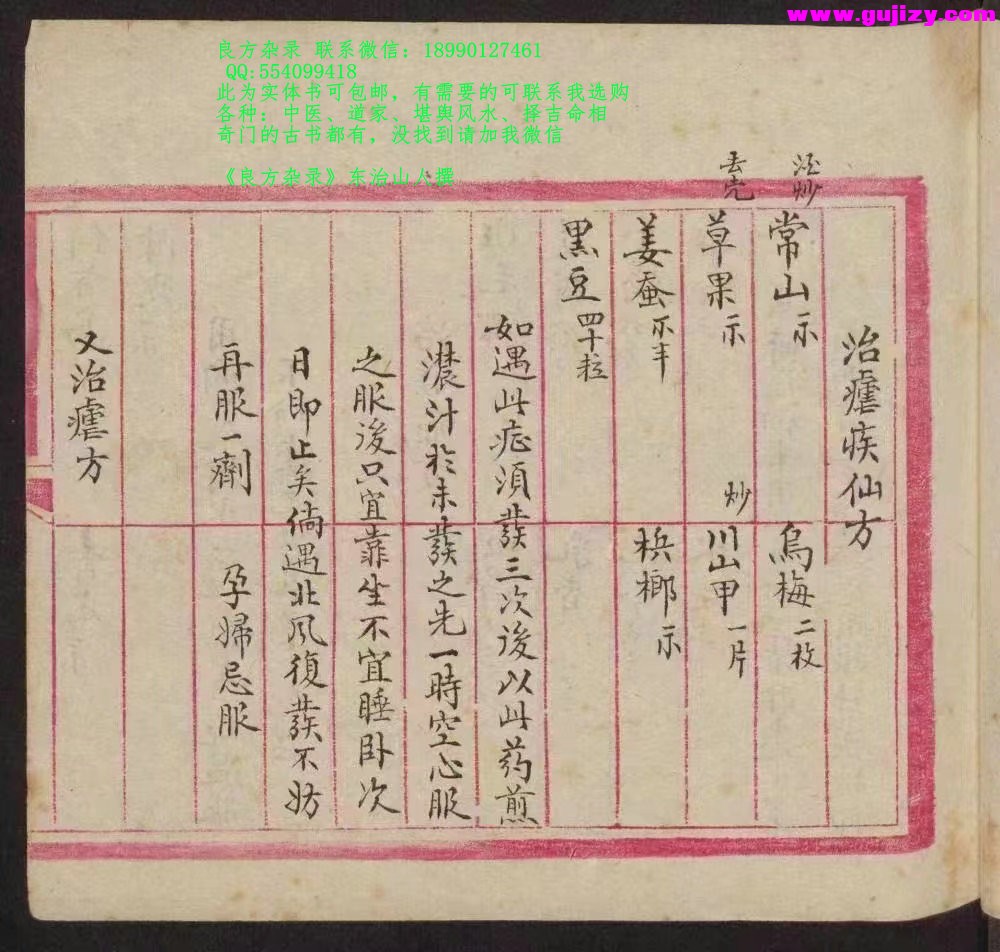 www.gujizy.com
良方杂录 联系微信：18990127461
QQ:554099418
此为实体书可包邮，有需要的可联系我选购
各种：中医、道家、堪舆风水、择吉命相
奇门的古书都有，没找到请加我微信
《良方杂录》东治山人撰
治瘧疾仙方
酒炒 常山 示 烏梅 二枚
去壳 草果 示 炒 川山甲 一片
姜蚕 不半 梹榔 示
黑豆 四十粒
如遇此症須發三次後以此药煎
濃汁於未發之先一時空心服
之服後只宜靠坐不宜睡卧次
日即止矣倘遇北风復發不妨
再服一劑 孕婦忌服
又治瘧方